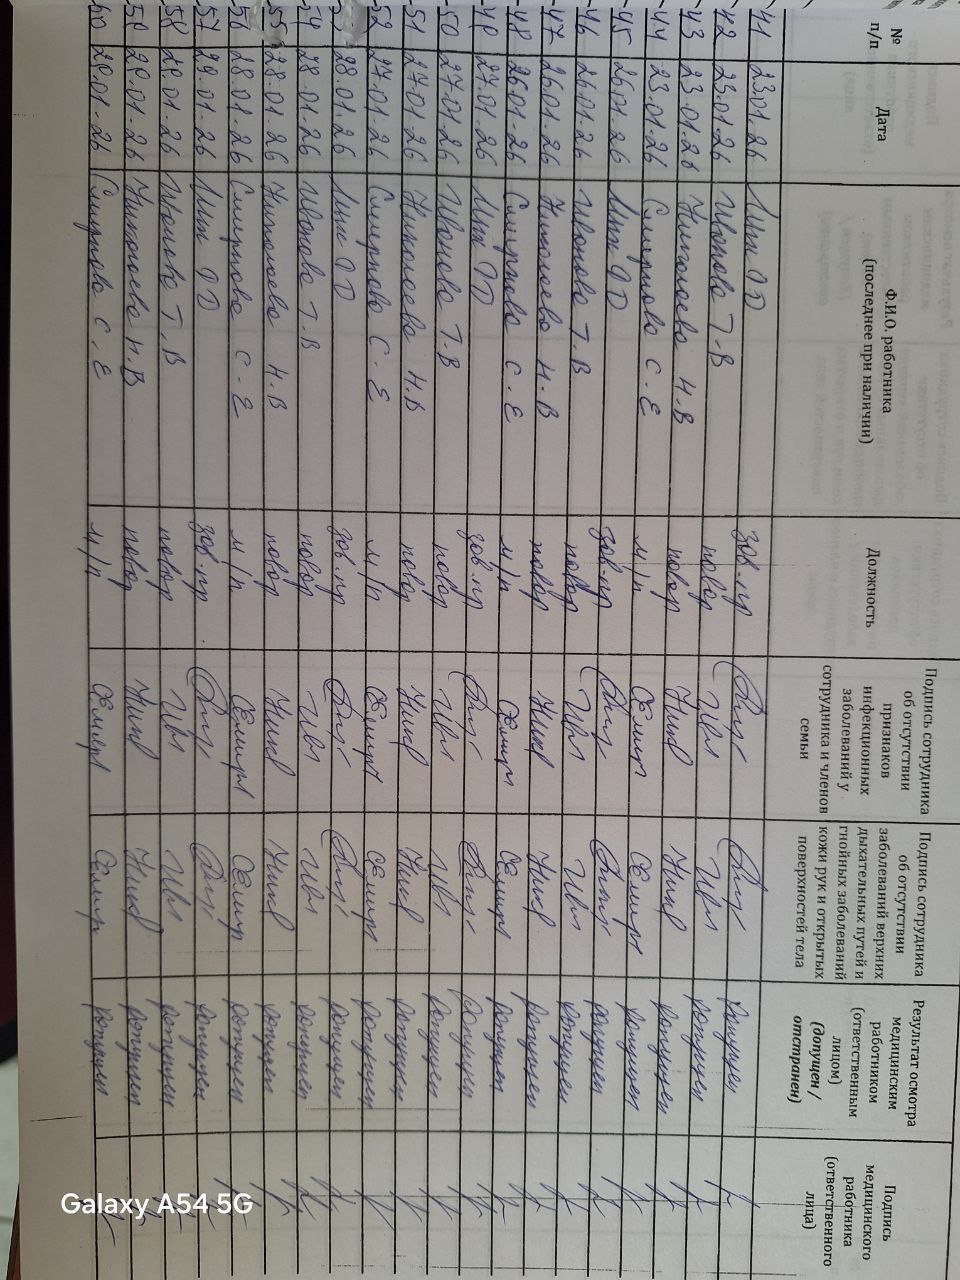 № п/п Дата Ф.И.О. работника (последнее при наличии) Должность Подпись сотрудника об отсутствии признаков инфекционных заболеваний у сотрудника и членов семьи Подпись сотрудника об отсутствии заболеваний верхних дыхательных путей и гнойных заболеваний кожи рук и открытых поверхностей тела Результат осмотра медицинским работником (ответственным лицом) (допущен / отстранен) Подпись медицинского работника (ответственного лица)
41 23.01.26 зав.пр допущен
42 23.01.26 Иванова Т.В повар Ив допущен
43 23.01.26 Николаева Н.В повар Ник допущен
44 23.01.26 Смирнова С.Е м/п Смирн допущен
45 26.01.26 зав.пр допущен
46 26.01.26 Иванова Т.В повар Ив допущен
47 26.01.26 Николаева Н.В повар Ник допущен
48 26.01.26 Смирнова С.Е м/п Смирн допущен
49 27.01.26 зав.пр допущен
50 27.01.26 Иванова Т.В повар Ив допущен
51 27.01.26 Николаева Н.В повар Ник допущен
52 27.01.26 Смирнова С.Е м/п Смирн допущен
28.01.26 зав.пр допущен
28.01.26 Иванова Т.В повар Ив допущен
55 28.01.26 Николаева Н.В повар Ник допущен
56 28.01.26 Смирнова С.Е м/п Смирн допущен
57 29.01.26 зав.пр допущен
58 29.01.26 Иванова Т.В повар Ив допущен
59 29.01.26 Николаева Н.В повар Ник допущен
60 29.01.26 Смирнова С.Е м/п Смирн допущен
Galaxy A54 5G